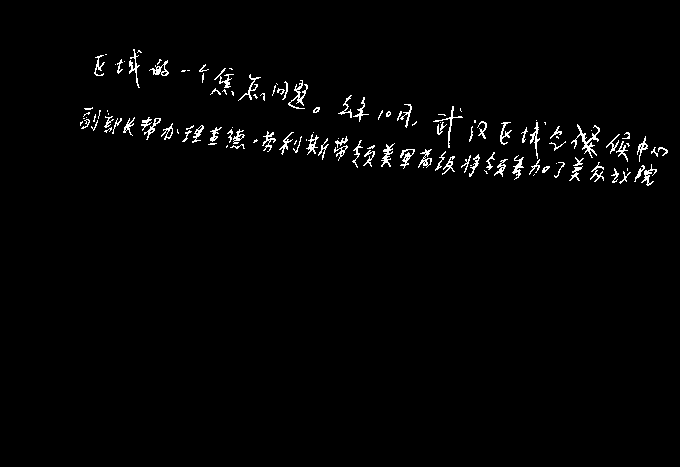 区域的一个焦点问题。去年10月，武汉区域气候中心
副部长帮办理查德·劳利斯带领美军高级将领参加了美众议院